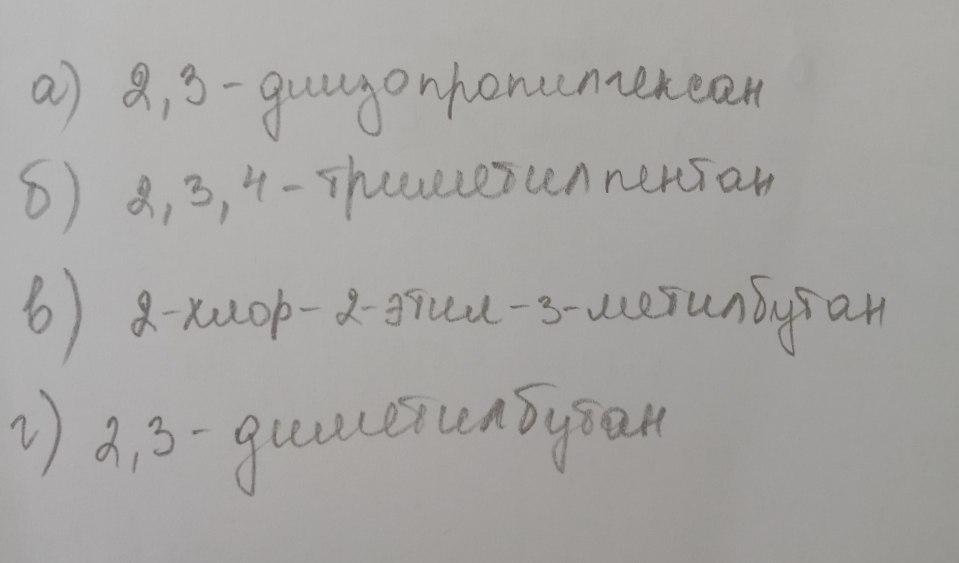 а) 2,3-диизопропилгексан
б) 2,3,4-триметилпентан
в) 2-хлор-2-этил-3-метилбутан
г) 2,3-диметилбутан